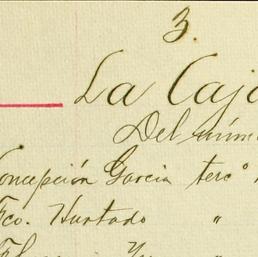 3.
La Caja
Del núm
Concepción Garcia terº
Fco. Hurtado "